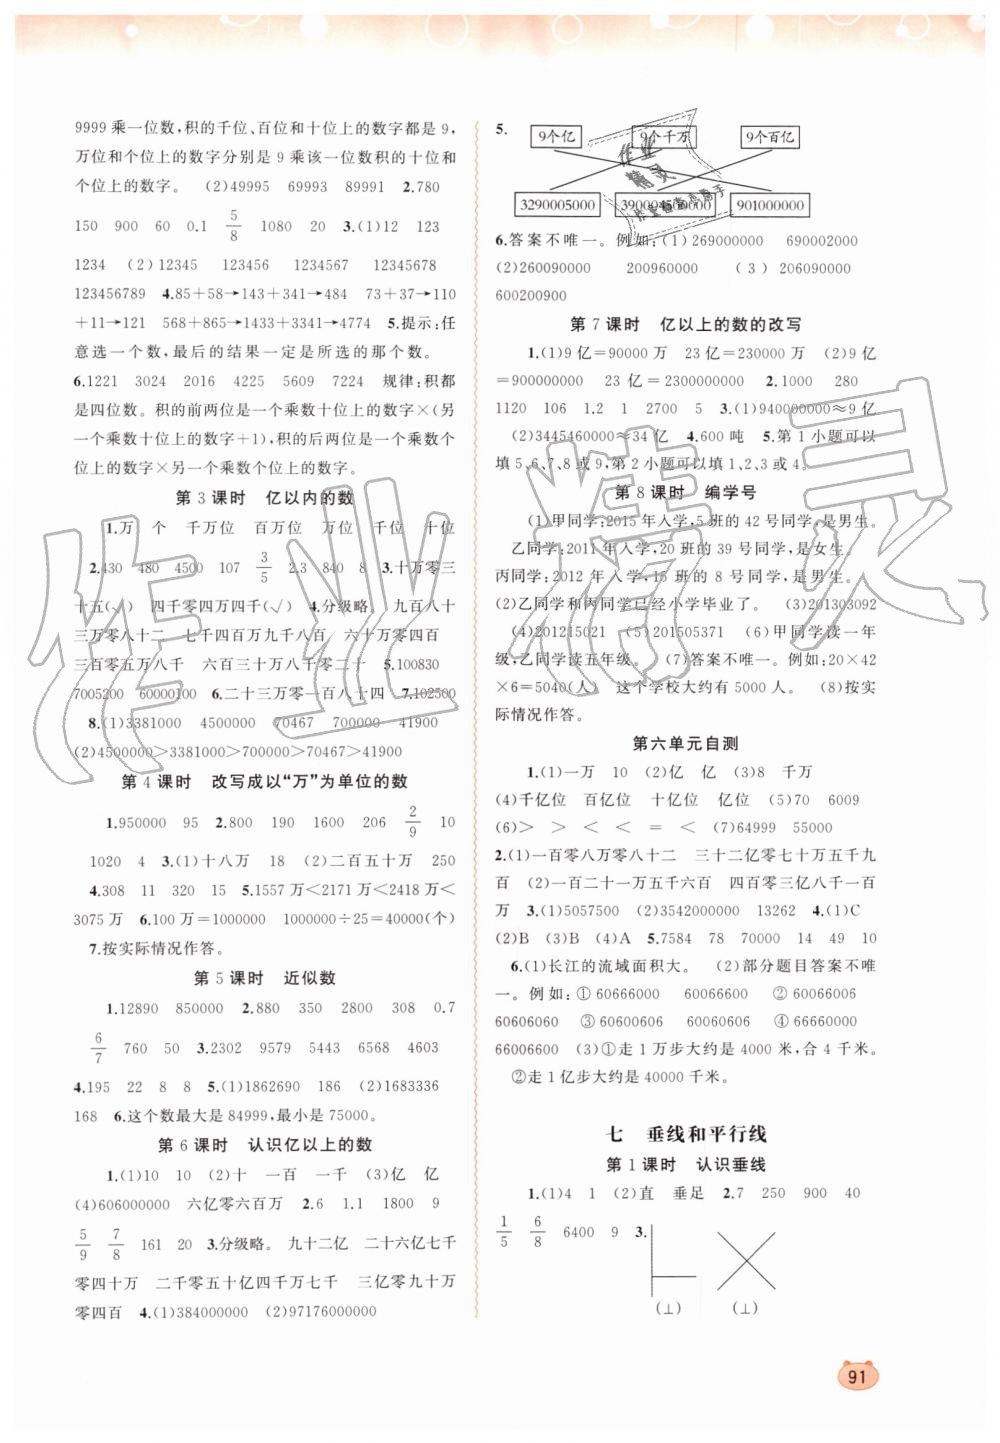 9999乘一位数,积的千位、百位和十位上的数字都是9,
万位和个位上的数字分别是9乘该一位数积的十位和
个位上的数字。 (2)49995 69993 89991 2.780
150 900 60 0.1 5/8 1080 20 3.(1)12 123
1234 (2)12345 123456 1234567 12345678
123456789 4.85+58→143+341→484 73+37→110
+11→121 568+865→1433+3341→4774 5.提示:任
意选一个数,最后的结果一定是所选的那个数。
6.1221 3024 2016 4225 5609 7224 规律:积都
是四位数。积的前两位是一个乘数十位上的数字×(另
一个乘数十位上的数字+1),积的后两位是一个乘数个
位上的数字×另一个乘数个位上的数字。
第3课时 亿以内的数
1.万 个 千万位 百万位 万位 千位 十位
2.430 480 4500 107 3/5 2.3 840 8 3.十万零三
十五(√) 四千零四万四千(√) 4.分级略。 九百八十
三万零八十二 七千四百万九千八百 六十万零四百
三百零五万八千 六百三十万八千零二十 5.100830
7005200 60000100 6.二十三万零一百八十四 7.102500
8.(1)3381000 4500000 70467 700000 41900
(2)4500000>3381000>700000>70467>41900
第4课时 改写成以“万”为单位的数
1.950000 95 2.800 190 1600 206 2/9 10
1020 4 3.(1)十八万 18 (2)二百五十万 250
4.308 11 320 15 5.1557万<2171万<2418万<
3075万 6.100万=1000000 1000000÷25=40000(个)
7.按实际情况作答。
第5课时 近似数
1.12890 850000 2.880 350 2800 308 0.7
6/7 760 50 3.2302 9579 5443 6568 4603
4.195 22 8 8 5.(1)1862690 186 (2)1683336
168 6.这个数最大是84999,最小是75000。
第6课时 认识亿以上的数
1.(1)10 10 (2)十 一百 一千 (3)亿 亿
(4)606000000 六亿零六百万 2.6 1.1 1800 9
5/9 7/8 161 20 3.分级略。 九十二亿 二十六亿七千
零四十万 二千零五十亿四千万七千 三亿零九十万
零四百 4.(1)384000000 (2)97176000000
5.
9个亿 9个千万 9个百亿
3290005000 390004500000 901000000
6.答案不唯一。例如:(1)269000000 690002000
(2)260090000 200960000 (3)206090000
600200900
第7课时 亿以上的数的改写
1.(1)9亿=90000万 23亿=230000万 (2)9亿
=900000000 23亿=2300000000 2.1000 280
1120 106 1.2 1 2700 5 3.(1)940000000≈9亿
(2)3445460000≈34亿 4.600吨 5.第1小题可以
填5、6、7、8或9,第2小题可以填1、2、3或4。
第8课时 编学号
(1)甲同学:2015年入学,5班的42号同学,是男生。
乙同学:2011年入学,20班的39号同学,是女生。
丙同学:2012年入学,15班的8号同学,是男生。
(2)乙同学和丙同学已经小学毕业了。 (3)201303092
(4)201215021 (5)201505371 (6)甲同学读一年
级,乙同学读五年级。 (7)答案不唯一。例如:20×42
×6=5040(人) 这个学校大约有5000人。 (8)按实
际情况作答。
第六单元自测
1.(1)一万 10 (2)亿 亿 (3)8 千万
(4)千亿位 百亿位 十亿位 亿位 (5)70 6009
(6)> > < < = < (7)64999 55000
2.(1)一百零八万零八十二 三十二亿零七十万五千九
百 (2)一百二十一万五千六百 四百零三亿八千一百
万 3.(1)5057500 (2)3542000000 13262 4.(1)C
(2)B (3)B (4)A 5.7584 78 70000 14 49 10
6.(1)长江的流域面积大。 (2)部分题目答案不唯
一。例如:①60666000 60066600 ②60066006
60606060 ③60600606 60060606 ④66660000
66006600 (3)①走1万步大约是4000米,合4千米。
②走1亿步大约是40000千米。
七 垂线和平行线
第1课时 认识垂线
1.(1)4 1 (2)直 垂足 2.7 250 900 40
1/5 6/8 6400 9 3.
(⊥) (⊥)
91
作业精灵
作业精灵